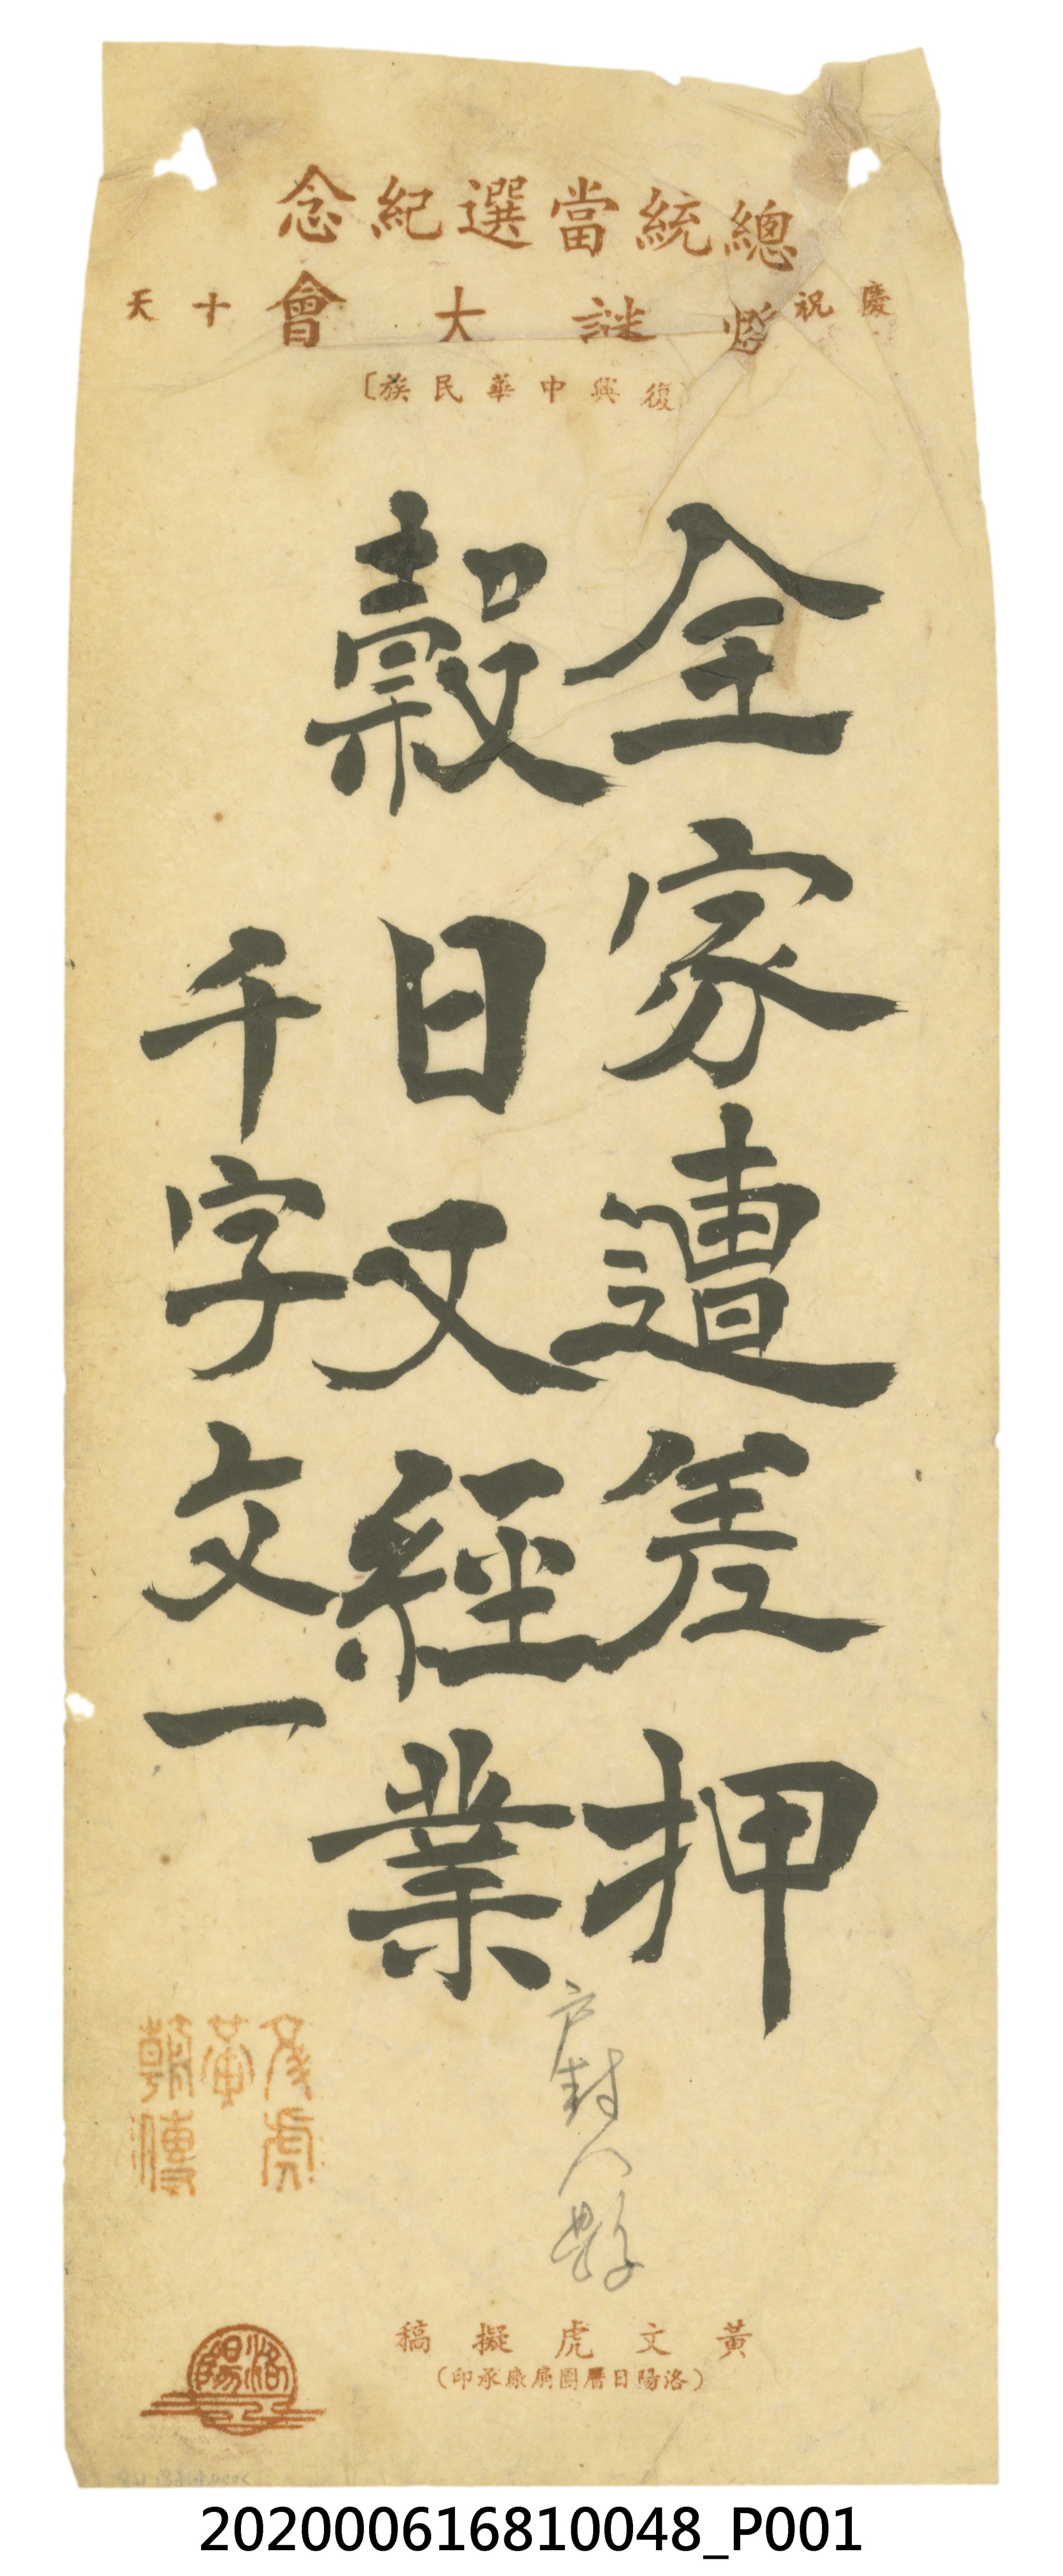 總統當選紀念
慶祝燈謎大會十天
〔復興中華民族〕
全家遭差押
穀日又經業
千字文一
戶封八縣
黃文虎擬稿
(洛陽日曆團扇廠承印)
洛陽
202000616810048_P001